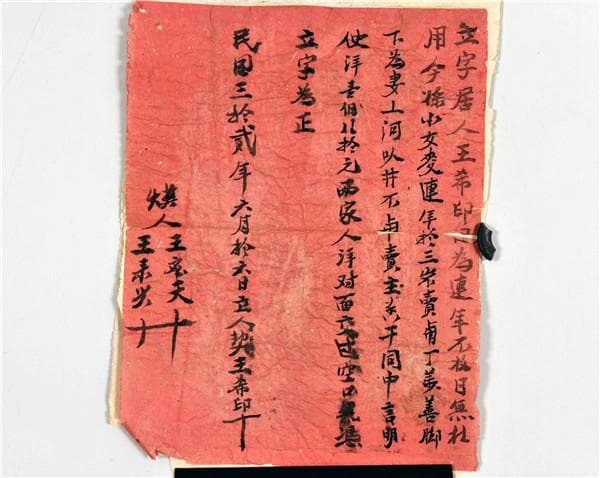 立字居人王希印因为連年不收日無杜
用今将小女变連年拾三岁賣甫丁美善脚
下为妻上河以井不甫賣主若干同中言明
使洋壹佰拾元两家人洋对面交过空口無憑
立字为正
民国三拾贰年六月拾六日立人契王希印十
人王宏夫十
王来兴十